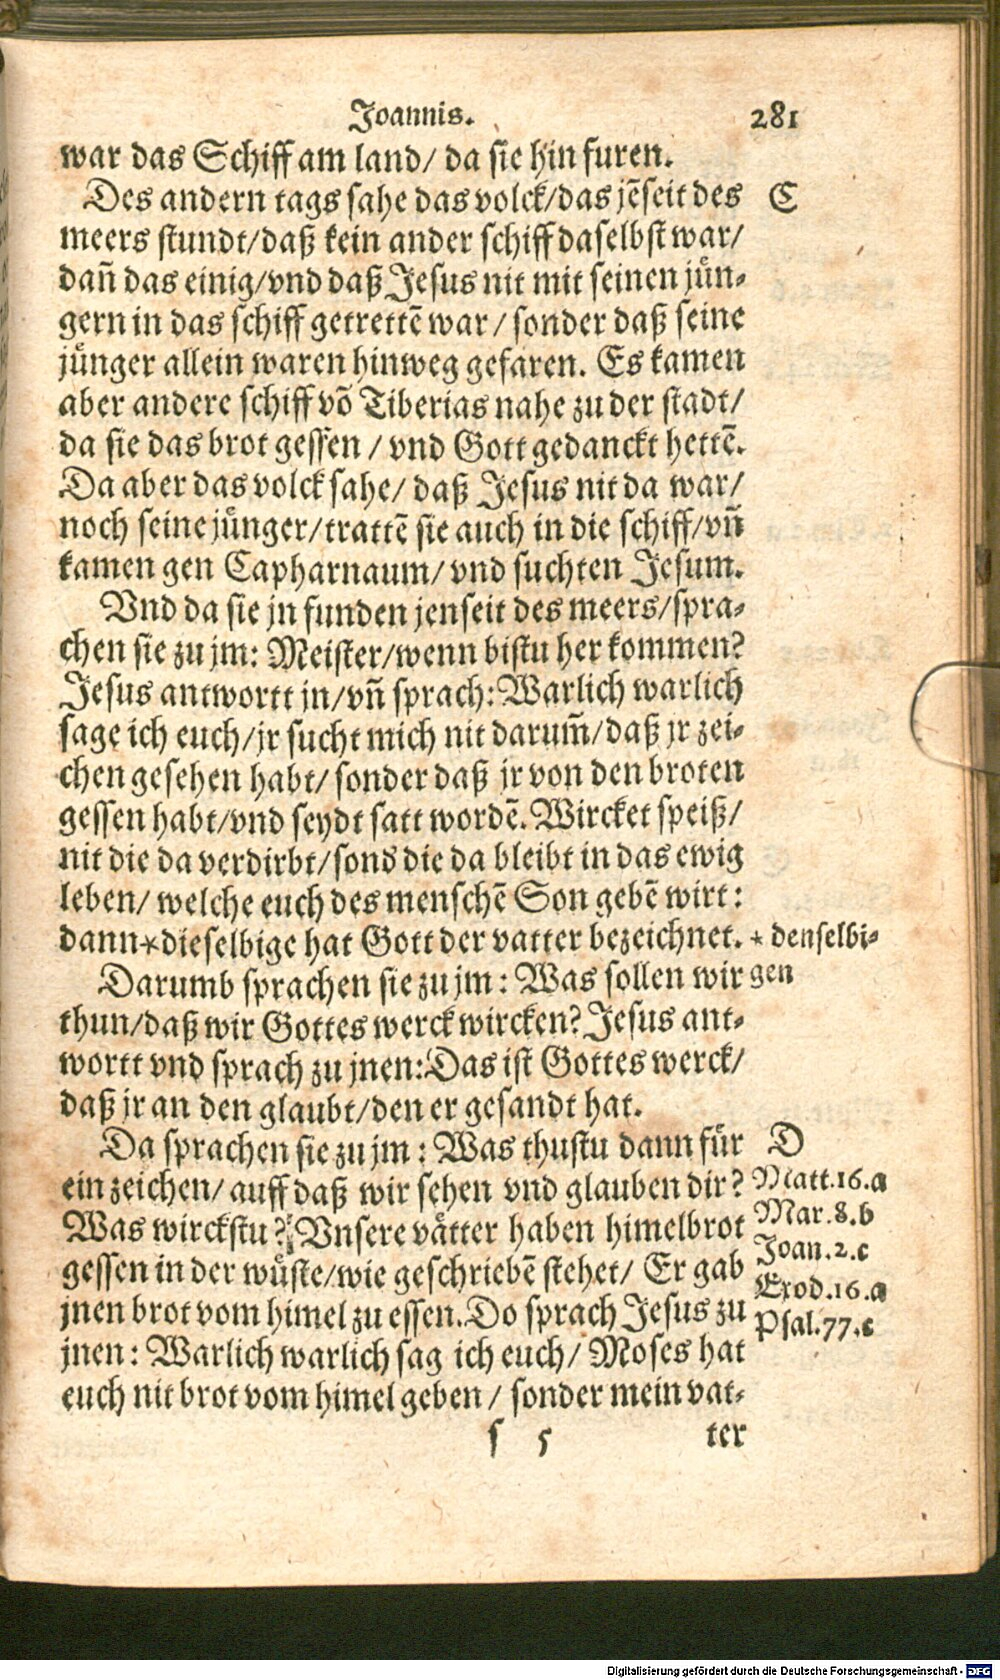 Joannis. 281
war das Schiff am land/ da sie hin furen.
Des andern tags sahe das volck/das jẽseit des C
meers stundt/daß kein ander schiff daselbst war/
dañ das einig/vnd daß Jesus nit mit seinen jün-
gern in das schiff getrettẽ war/ sonder daß seine
jünger allein waren hinweg gefaren. Es kamen
aber andere schiff võ Tiberias nahe zu der stadt/
da sie das brot gessen / vnd Gott gedanckt hettẽ.
Da aber das volck sahe/ daß Jesus nit da war/
noch seine jünger/trattẽ sie auch in die schiff/vñ
kamen gen Capharnaum/ vnd suchten Jesum.
Vnd da sie jn funden jenseit des meers/spra-
chen sie zu jm: Meister/wenn bistu her kommen?
Jesus antwortt in/vñ sprach: Warlich warlich
sage ich euch/jr sucht mich nit darum̃/daß jr zei-
chen gesehen habt/ sonder daß jr von den broten
gessen habt/vnd seydt satt wordẽ. Wircket speiß/
nit die da verdirbt/sond die da bleibt in das ewig
leben/ welche euch des menschẽ Son gebẽ wirt:
dann*dieselbige hat Gott der vatter bezeichnet. * denselbi-
gen
Darumb sprachen sie zu jm: Was sollen wir
thun/daß wir Gottes werck wircken? Jesus ant-
wortt vnd sprach zu jnen: Das ist Gottes werck/
daß jr an den glaubt/den er gesandt hat.
Da sprachen sie zu jm: Was thustu dann für D
ein zeichen/ auff daß wir sehen vnd glauben dir? Matt.16.a
Was wirckstu? Vnsere vätter haben himelbrot Mar.8.b
Joan.2.c
gessen in der wüste/wie geschriebẽ stehet/ Er gab Exod.16.a
jnen brot vom himel zu essen. Do sprach Jesus zu Psal.77.c
jnen: Warlich warlich sag ich euch/ Moses hat
euch nit brot vom himel geben / sonder mein vat-
s 5 ter
Digitalisierung gefördert durch die Deutsche Forschungsgemeinschaft - DFG